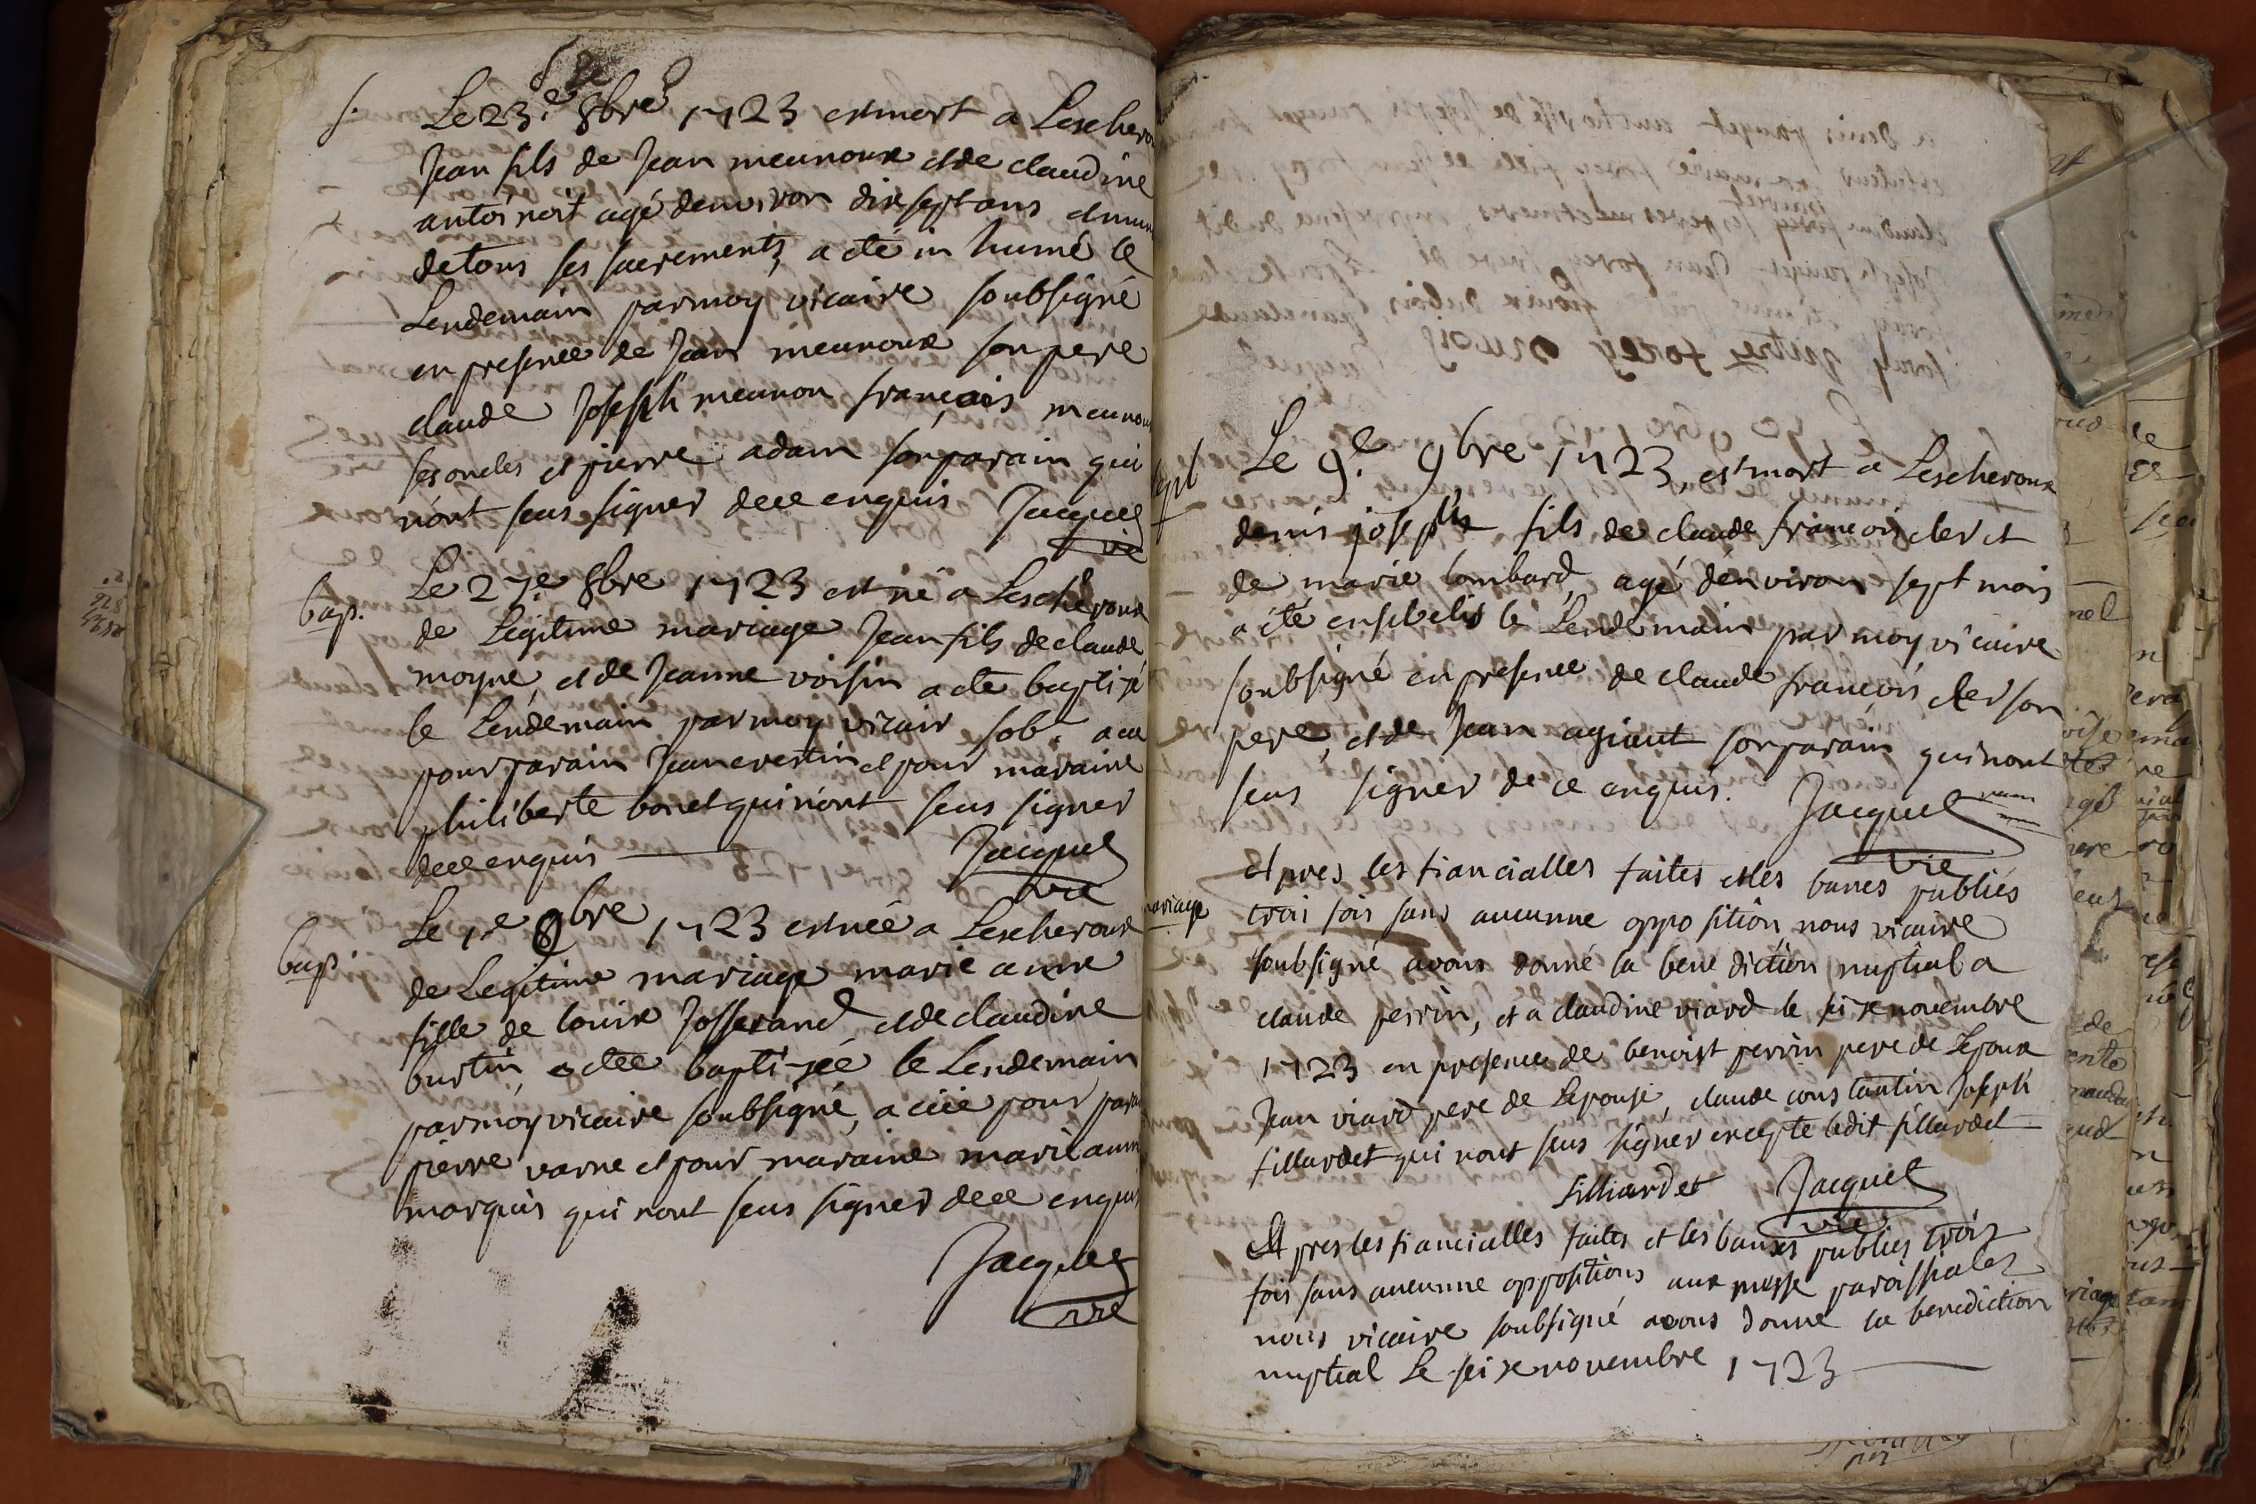 s.
Le 23.e 8bre 1723 est mort a Lescherou
Jean fils de Jean meunoux et de claudine
antoinoit agé denviron dix sept ans et muni
de tous ses sacrements, a eté in humé le
Lendemain par moy vicaire soubsigné
en presence de Jean meunoux son pere
claude Joseph meunon françois meunou
ses oncles et pierre adam son parain qui
n'ont seus signer de ce enquis Jacquet
vic
bap.
Le 27.e 8bre 1723 est né a Lescheroux
de Legitime mariage Jean fils de claude
moyne, et de Jeanne voisin a eté baptisé
le Lendemain par moy vicair sob. a eu
pour parain Jean evestin et pour maraine
philiberte boret qui n'ont seus signer
de ce enquis Jacquet
vic
bap.
Le 1.e 9bre 1723 est née a Lescheroux
de Legitime mariage marie anne
fille de louix Josserand et de claudine
burtin, a etee baptisée le Lendemain
par moy vicaire soubsigné, a eüe pour para
pierre varne et pour maraine marie ann
marquis qui nont seus signer de ce enquis
Jacquet
vic
sepul
Le 9.e 9bre 1723, est mort a Lescheroux
denis joseph fils de claude françois cler et
de marie lombard, agé denviron sept mois
a eté ensebelis le Lendemain par moy vicaire
soubsigné en presence de claude françois cler son
pere, et de Jean agiaut son parain qui nont
seus signer de ce enquis. Jacquet
vic
mariage
et pres les fiancialles faites et les bancs publiés
trois fois sans aucunne opposition nous vicaire
soubsigné avons donné la bene diction nuptial a
claude perrin, et a claudine viard le sixe novembre
1723 en presence de benoist perrin pere de Lepoux
Jean viard pere de Lepouse, claude constantin Joseph
fillardet qui nont seus signer excepte ledit fillardet
filliardet Jacquet
vic
Et pres les fiancialles faites et les bancs publies trois
fois sans aucunne oppositions aux messe paroissiales
nous vicaire soubsigné avons donne la benediction
nuptial Le seixe novembre 1723